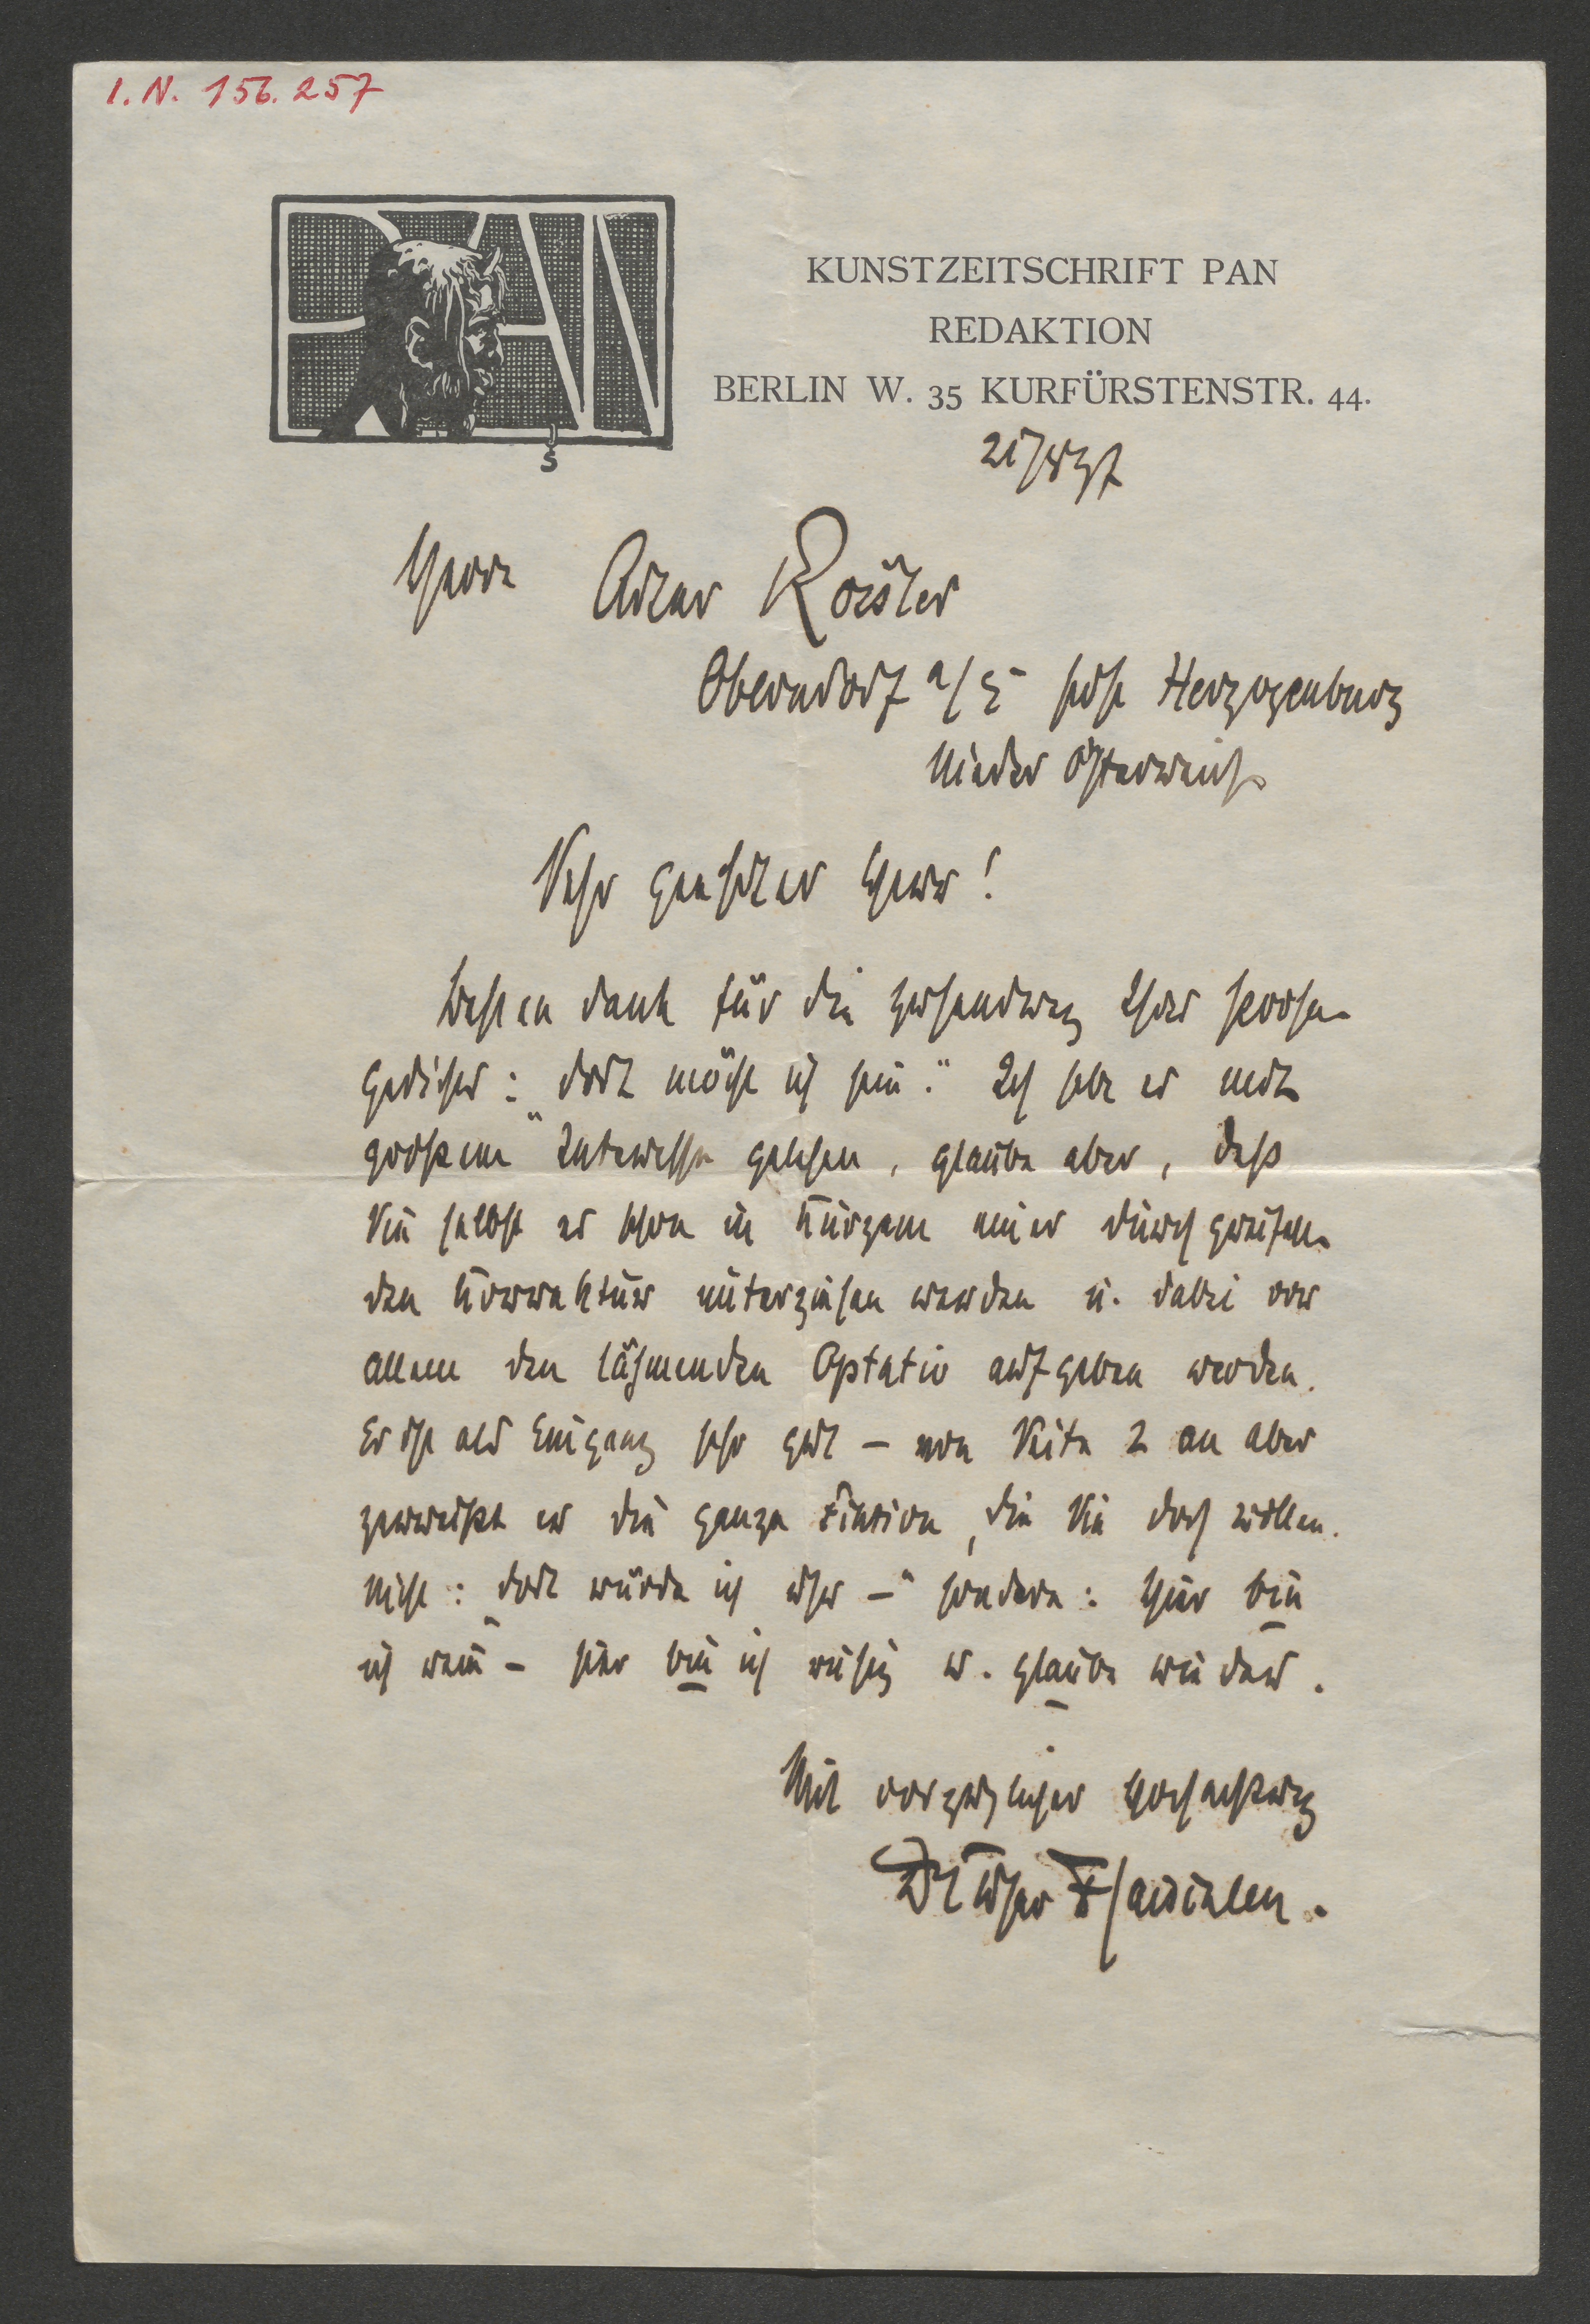 I. N. 156.257
PAN
JS
KUNSTZEITSCHRIFT PAN
REDAKTION
BERLIN W. 35 KURFÜRSTENSTR. 44.
Herrn Artur Roessler
Oberndorf a/E post Herzogenburg
Nieder Österreich
Sehr geehrter Herr!
Besten Dank für die Zusendung Ihres Prosa-
gedichts: „Dort möcht ich sein." Ich habe es mit
großem Interesse gelesen, glaube aber, daß
Sie selbst es schon in Kurzem einer durchgreifen-
den Korrektur unterziehen werden u. dabei vor
allem den lähmenden Optativ aufgeben werden.
Er ist als Eingang sehr gut – von Seite 2 an aber
zerreißt er die ganze Fiktion, die Sie doch wollen.
Nicht: „dort würde ich –" sondern: Hier bin
ich rein – hier bin ich ruhig u. glaube wieder.
Mit vorzüglicher Hochachtung
Dr Cäsar Flaischlen.